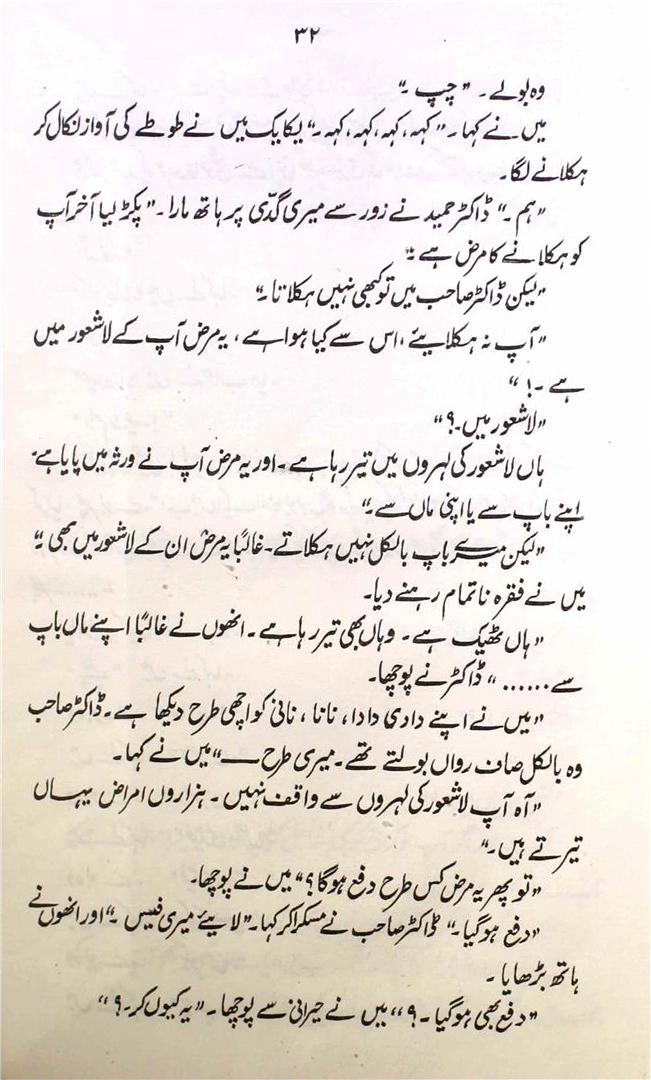 ۳۲
وہ بولے۔ ”چپ۔“
میں نے کہا۔ ”کہہ، کہہ، کہہ، کہہ۔“ یکایک میں نے طوطے کی آواز نکال کر
ہکلانے لگا۔
”ہم۔“ ڈاکٹر حمید نے زور سے میری گدّی پر ہاتھ مارا۔ ”پکڑ لیا آخر آپ
کو ہکلانے کا مرض ہے۔“
”لیکن ڈاکٹر صاحب میں تو کبھی نہیں ہکلاتا۔“
”آپ نہ ہکلایئے، اس سے کیا ہوا ہے، یہ مرض آپ کے لاشعور میں
ہے۔!“
”لاشعور میں۔؟“
ہاں لاشعور کی لہروں میں تیر رہا ہے۔ اور یہ مرض آپ نے ورثہ میں پایا ہے۔
اپنے باپ سے یا اپنی ماں سے۔“
”لیکن میرے باپ بالکل نہیں ہکلاتے۔ غالباً یہ مرض ان کے لاشعور میں بھی۔“
میں نے فقرہ ناتمام رہنے دیا۔
”ہاں ٹھیک ہے۔ وہاں بھی تیر رہا ہے۔ انھوں نے غالباً اپنے ماں باپ
سے......“ ڈاکٹر نے پوچھا۔
”میں نے اپنے دادی دادا، نانا، نانی کو اچھی طرح دیکھا ہے۔ ڈاکٹر صاحب
وہ بالکل صاف رواں بولتے تھے۔ میری طرح ——“ میں نے کہا۔
”آہ آپ لاشعور کی لہروں سے واقف نہیں۔ ہزاروں امراض یہاں
تیرتے ہیں۔“
”تو پھر یہ مرض کس طرح دفع ہوگا؟“ میں نے پوچھا۔
”دفع ہوگیا۔“ ڈاکٹر صاحب نے مسکرا کر کہا۔ ”لایئے میری فیس۔“ اور انھوں نے
ہاتھ بڑھایا۔
”دفع بھی ہوگیا۔؟“ میں نے حیرانی سے پوچھا۔ ”یہ کیوں کر۔؟“